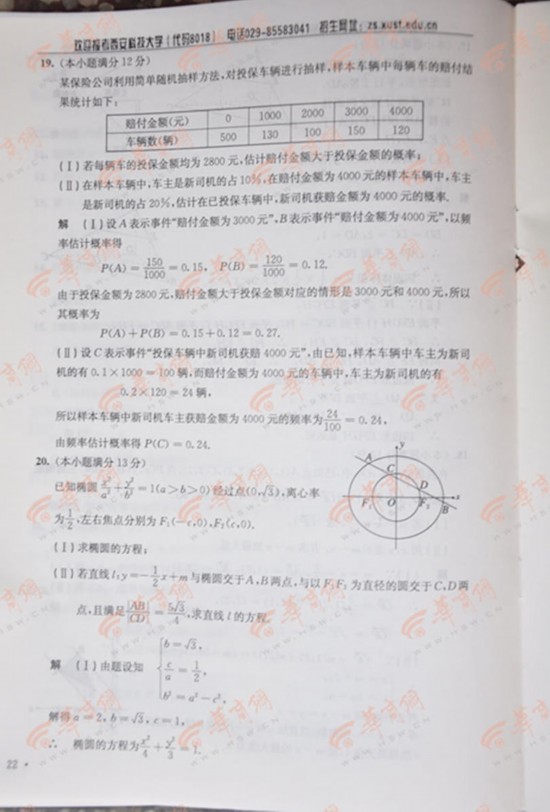 欢迎报考西安科技大学(代码8018) 电话029-85583041 招生网址:zs.xust.edu.cn
19.(本小题满分12分)
某保险公司利用简单随机抽样方法,对投保车辆进行抽样,样本车辆中每辆车的赔付结
果统计如下:
赔付金额(元) 0 1000 2000 3000 4000
车辆数(辆) 500 130 100 150 120
(Ⅰ)若每辆车的投保金额均为2800元,估计赔付金额大于投保金额的概率;
(Ⅱ)在样本车辆中,车主是新司机的占10%,在赔付金额为4000元的样本车辆中,车主
是新司机的占20%,估计在已投保车辆中,新司机获赔金额为4000元的概率.
解 (Ⅰ)设A表示事件“赔付金额为3000元”,B表示事件“赔付金额为4000元”,以频
率估计概率得
P(A)=150/1000=0.15, P(B)=120/1000=0.12.
由于投保金额为2800元,赔付金额大于投保金额对应的情形是3000元和4000元,所以
其概率为
P(A)+P(B)=0.15+0.12=0.27.
(Ⅱ)设C表示事件“投保车辆中新司机获赔4000元”,由已知,样本车辆中车主为新司
机的有0.1×1000=100辆,而赔付金额为4000元的车辆中,车主为新司机的有
0.2×120=24辆,
所以样本车辆中新司机车主获赔金额为4000元的频率为24/100=0.24,
由频率估计概率得P(C)=0.24.
20.(本小题满分13分)
已知椭圆x²/a²+y²/b²=1(a>b>0)经过点(0,√3),离心率
为1/2,左右焦点分别为F₁(-c,0),F₂(c,0).
y
A
C
D
F₁ O F₂ B x
(Ⅰ)求椭圆的方程;
(Ⅱ)若直线l:y=-1/2x+m与椭圆交于A,B两点,与以F₁F₂为直径的圆交于C,D两
点,且满足|AB|/|CD|=5√3/4,求直线l的方程.
解 (Ⅰ)由题设知 {b=√3,
c/a=1/2,
b²=a²-c²,
解得a=2,b=√3,c=1,
∴ 椭圆的方程为x²/4+y²/3=1.
22
华商网